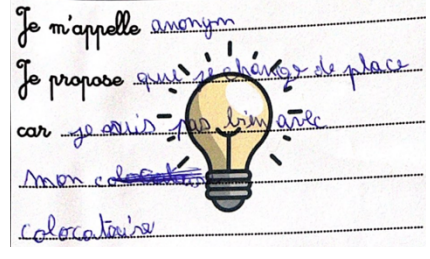 Je m'appelle anonym
Je propose que je change de place
car je suis pas bien avec
mon
colocataire